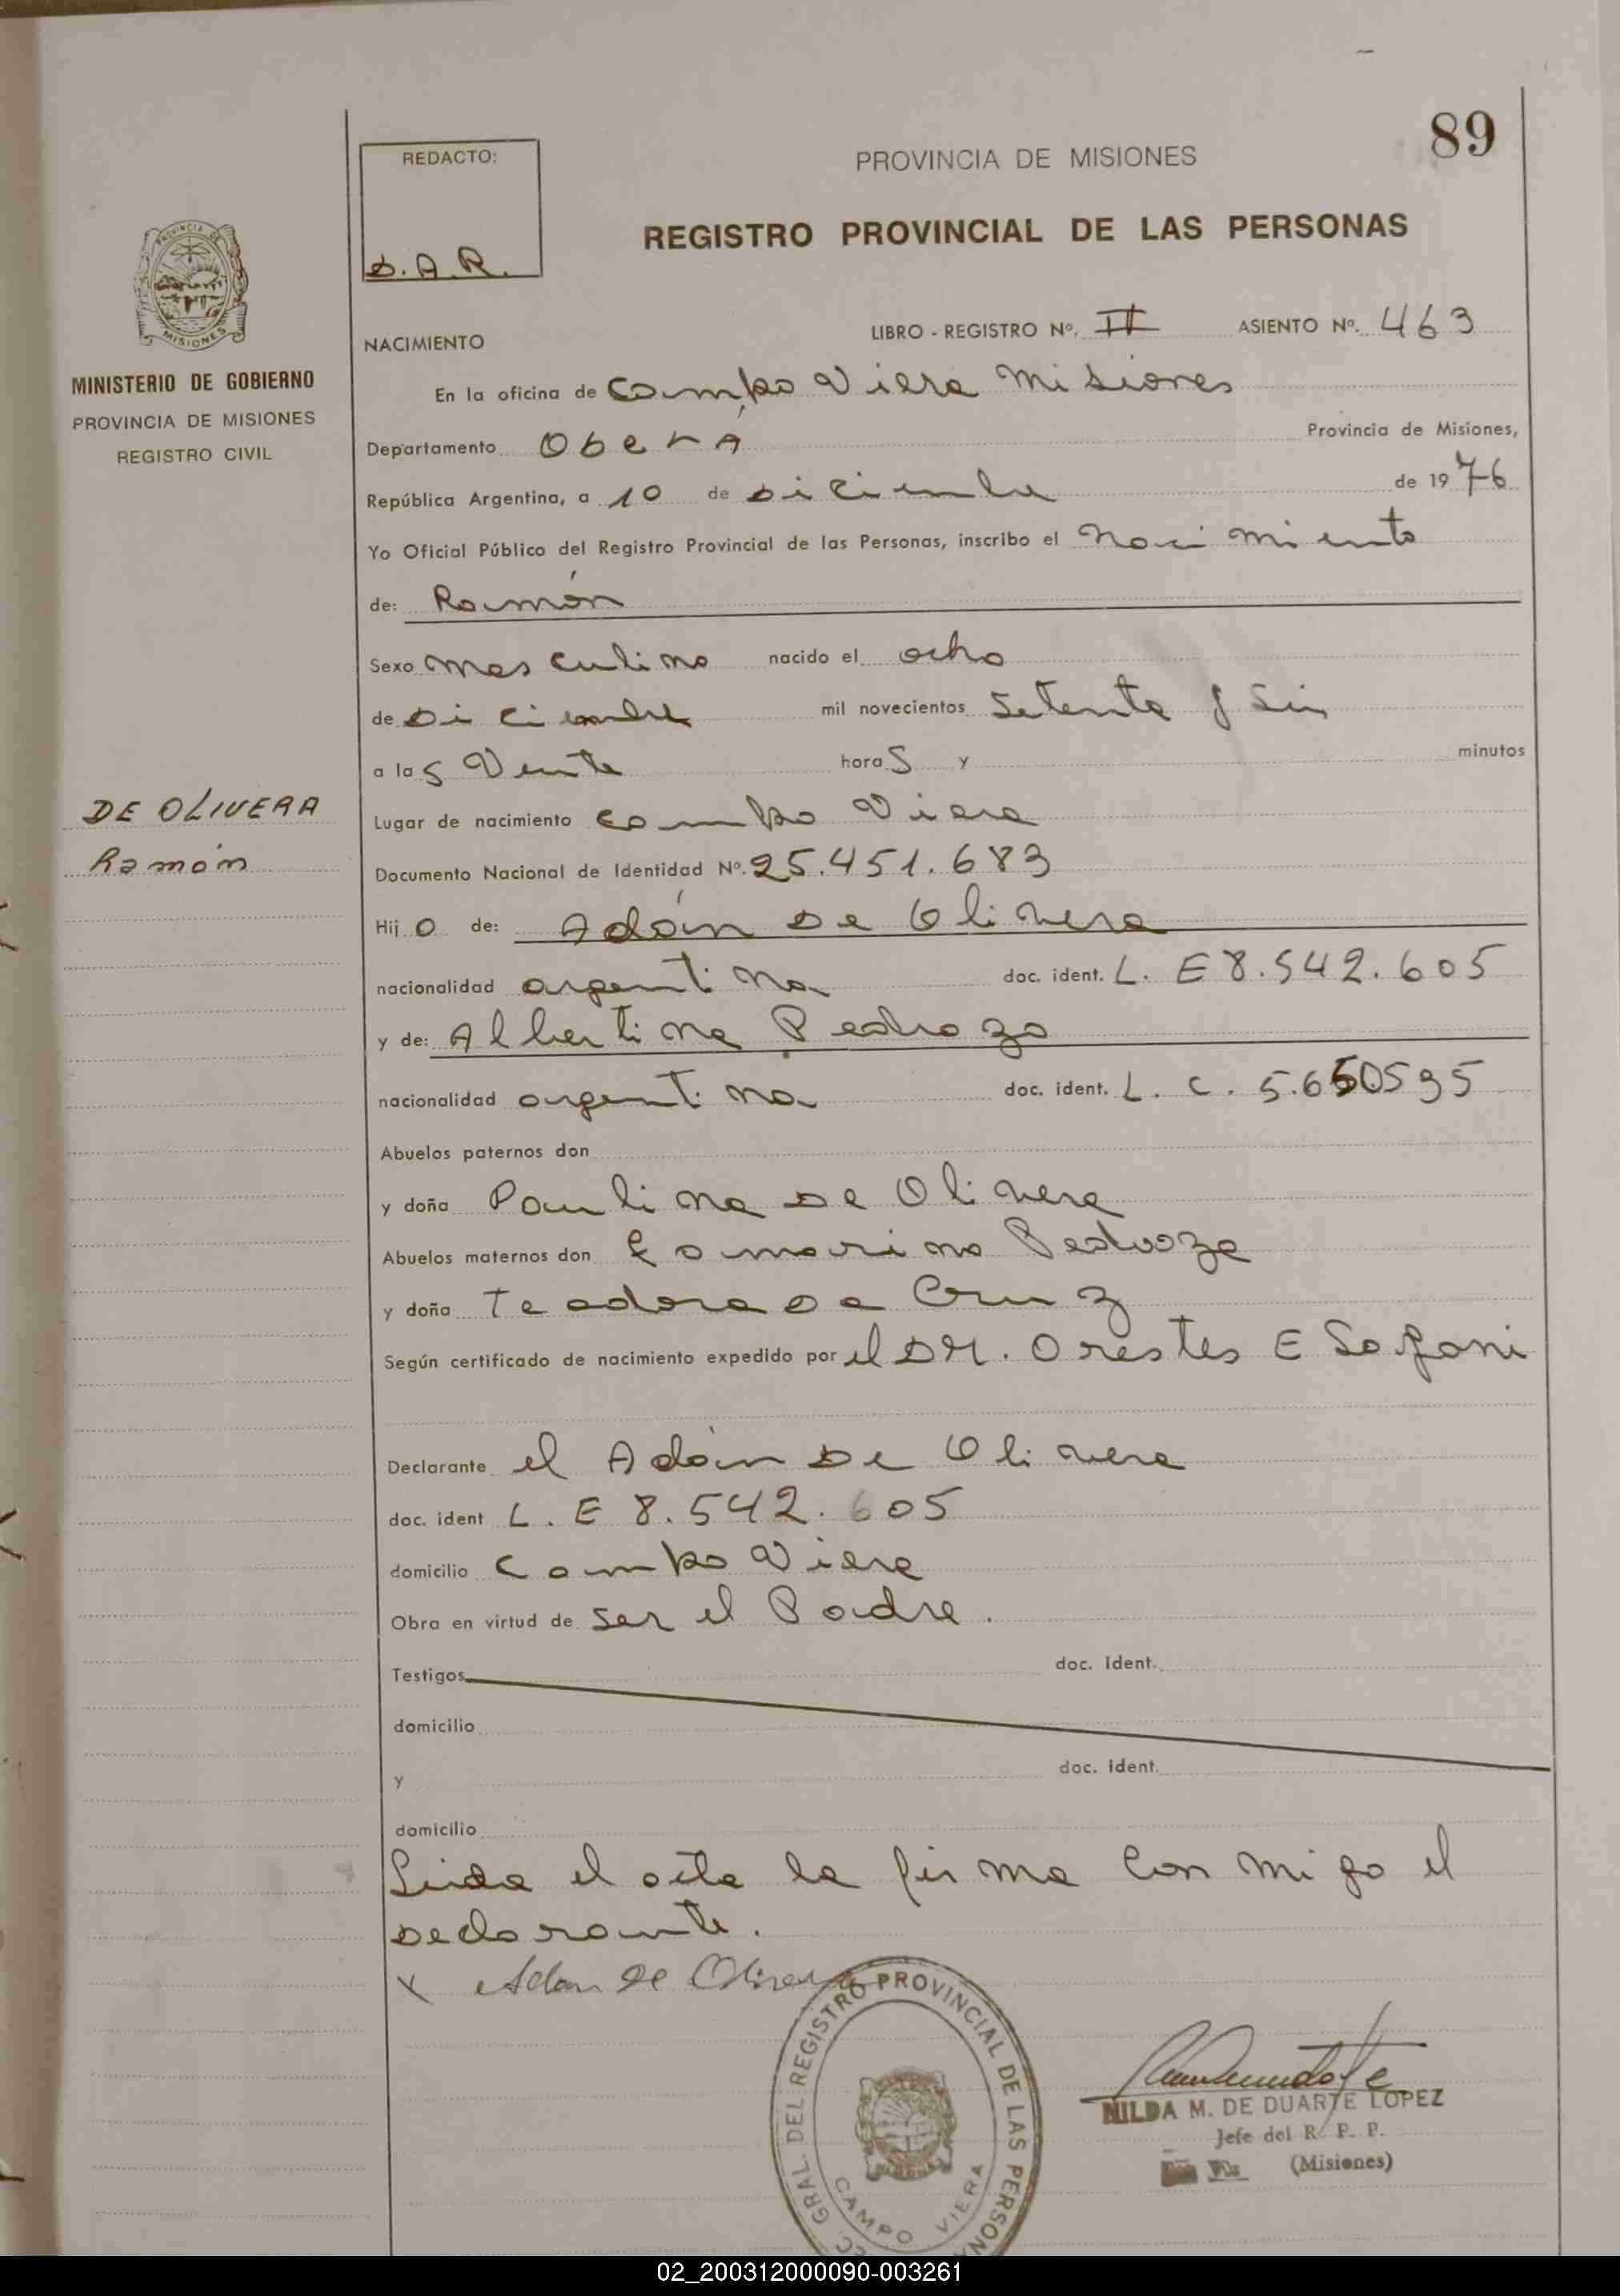 89
REDACTO:
D.A.R.
PROVINCIA DE MISIONES
REGISTRO PROVINCIAL DE LAS PERSONAS
PROVINCIA DE
MISIONES
MINISTERIO DE GOBIERNO
PROVINCIA DE MISIONES
REGISTRO CIVIL
DE OLIVERA
Ramón
NACIMIENTO LIBRO - REGISTRO Nº. II ASIENTO Nº. 463
En la oficina de Campo Viera Misiones
Departamento Oberá Provincia de Misiones,
República Argentina, a 10 de Diciembre de 1976
Yo Oficial Público del Registro Provincial de las Personas, inscribo el Nacimiento
de: Ramón
Sexo masculino nacido el ocho
de Diciembre mil novecientos Setenta y Seis
a las Veinte horas y minutos
Lugar de nacimiento Campo Viera
Documento Nacional de Identidad Nº. 25.451.683
Hijo de: Adán De Olivera
nacionalidad argentina doc. ident. L. E 8.542.605
y de: Albertina Pedrozo
nacionalidad argentina doc. ident. L. C. 5.650595
Abuelos paternos don
y doña Paulina De Olivera
Abuelos maternos don Pedroza
y doña Teodora Da Cruz
Según certificado de nacimiento expedido por el DR. Orestes E
Declarante el Adán De Olivera
doc. ident L. E 8.542.605
domicilio Campo Viera
Obra en virtud de ser el Padre.
Testigos doc. ident.
domicilio
y doc. ident.
domicilio
Leida el acta la firma con migo el
Declarante.
X Adan De Olivera
GRAL. DEL REGISTRO PROVINCIAL DE LAS PERSONA
CAMPO VIERA
NILDA M. DE DUARTE LOPEZ
Jefe del R. P. P.
(Misiones)
02_200312000090-003261